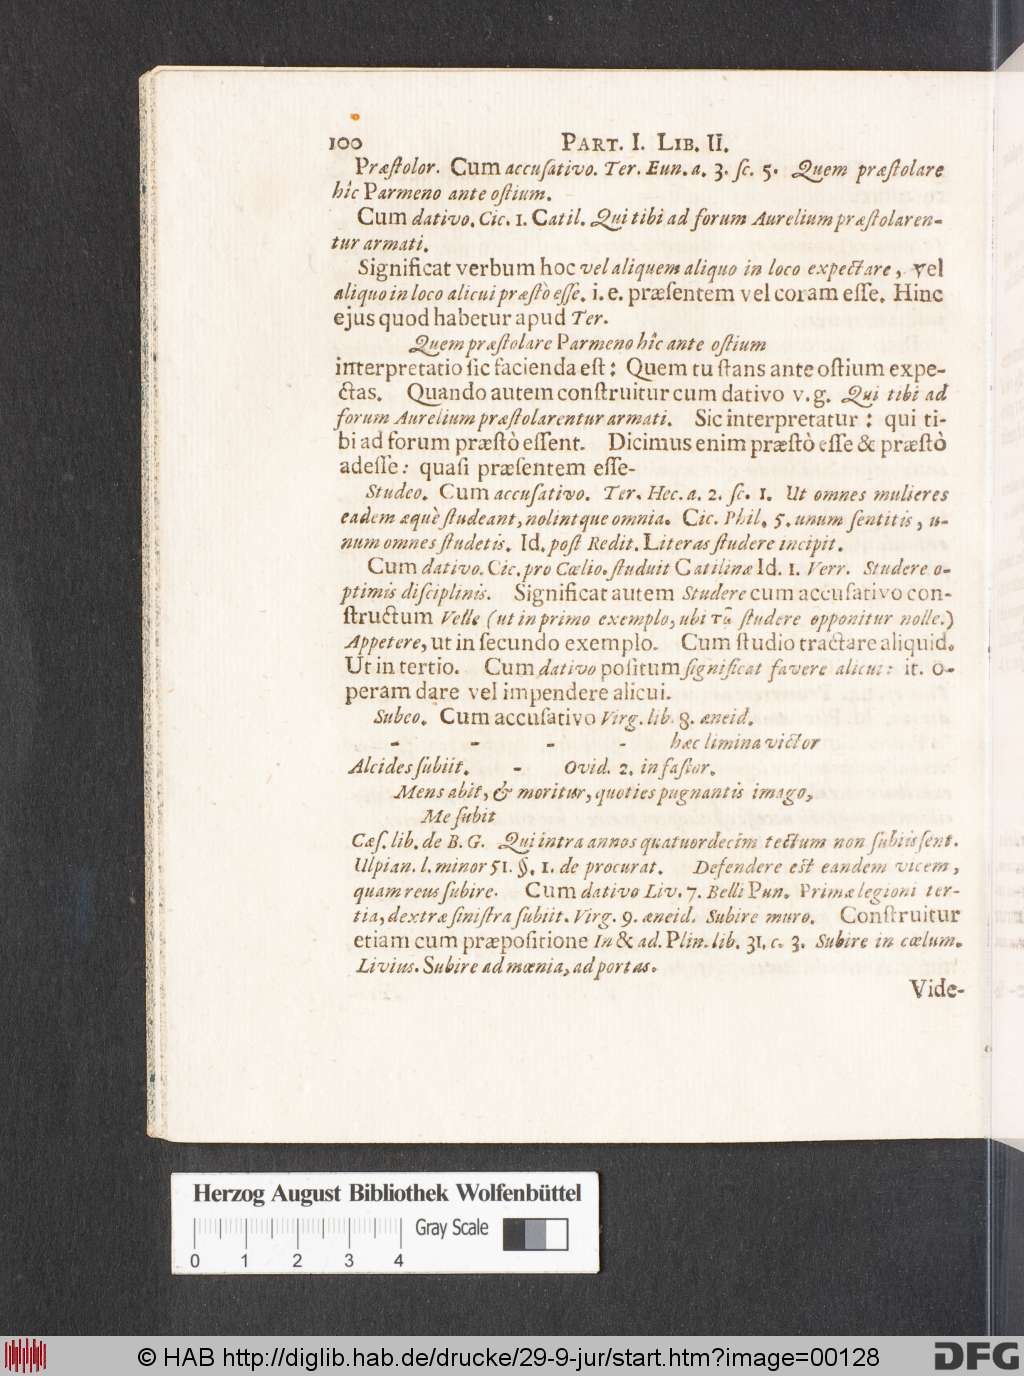 100 PART. I. LIB. II.
Præſtolor. Cum accuſativo. Ter. Eun. a. 3. ſc. 5. Quem præſtolare
hîc Parmeno ante oſtium.
Cum dativo. Cic. 1. Catil. Qui tibi ad forum Aurelium præſtolaren-
tur armati.
Significat verbum hoc vel aliquem aliquo in loco expectare, vel
aliquo in loco alicui præſtò eſſe. i. e. præſentem vel coram eſſe. Hinc
ejus quod habetur apud Ter.
Quem præſtolare Parmeno hîc ante oſtium
interpretatio ſic facienda eſt: Quem tu ſtans ante oſtium expe-
ctas. Quando autem conſtruitur cum dativo v. g. Qui tibi ad
forum Aurelium præſtolarentur armati. Sic interpretatur: qui ti-
bi ad forum præſtò eſſent. Dicimus enim præſtò eſſe & præſtò
adeſſe: quaſi præſentem eſſe-
Studeo. Cum accuſativo. Ter. Hec. a. 2. ſc. 1. Ut omnes mulieres
eadem æquè ſtudeant, nolintque omnia. Cic. Phil. 5. unum ſentitis, u-
num omnes ſtudetis. Id. poſt Redit. Literas ſtudere incipit.
Cum dativo. Cic. pro Cœlio. ſtuduit Catilinæ Id. 1. Verr. Studere o-
ptimis diſciplinis. Significat autem Studere cum accuſativo con-
ſtructum Velle (ut in primo exemplo, ubi ſtudere opponitur nolle.)
Appetere, ut in ſecundo exemplo. Cum ſtudio tractare aliquid.
Ut in tertio. Cum dativo poſitum ſignificat favere alicui: it. o-
peram dare vel impendere alicui.
Subeo. Cum accuſativo Virg. lib. 8. æneid.
- - - - hæc limina victor
Alcides ſubiit. - Ovid. 2. in faſtor.
Mens abit, & moritur, quoties pugnantis imago,
Me ſubit
Cæſ. lib. de B. G. Qui intra annos quatuordecim tectum non ſubiiſſent.
Ulpian. l. minor 51. §. 1. de procurat. Defendere eſt eandem vicem,
quam reus ſubire. Cum dativo Liv. 7. Belli Pun. Primæ legioni ter-
tia, dextræ ſiniſtra ſubiit. Virg. 9. æneid. Subire muro. Conſtruitur
etiam cum præpoſitione In & ad. Plin. lib. 31. c. 3. Subire in cœlum.
Livius. Subire ad mœnia, ad portas.
Vide-
Herzog August Bibliothek Wolfenbüttel
Gray Scale
0 1 2 3 4
© HAB http://diglib.hab.de/drucke/29-9-jur/start.htm?image=00128
DFG